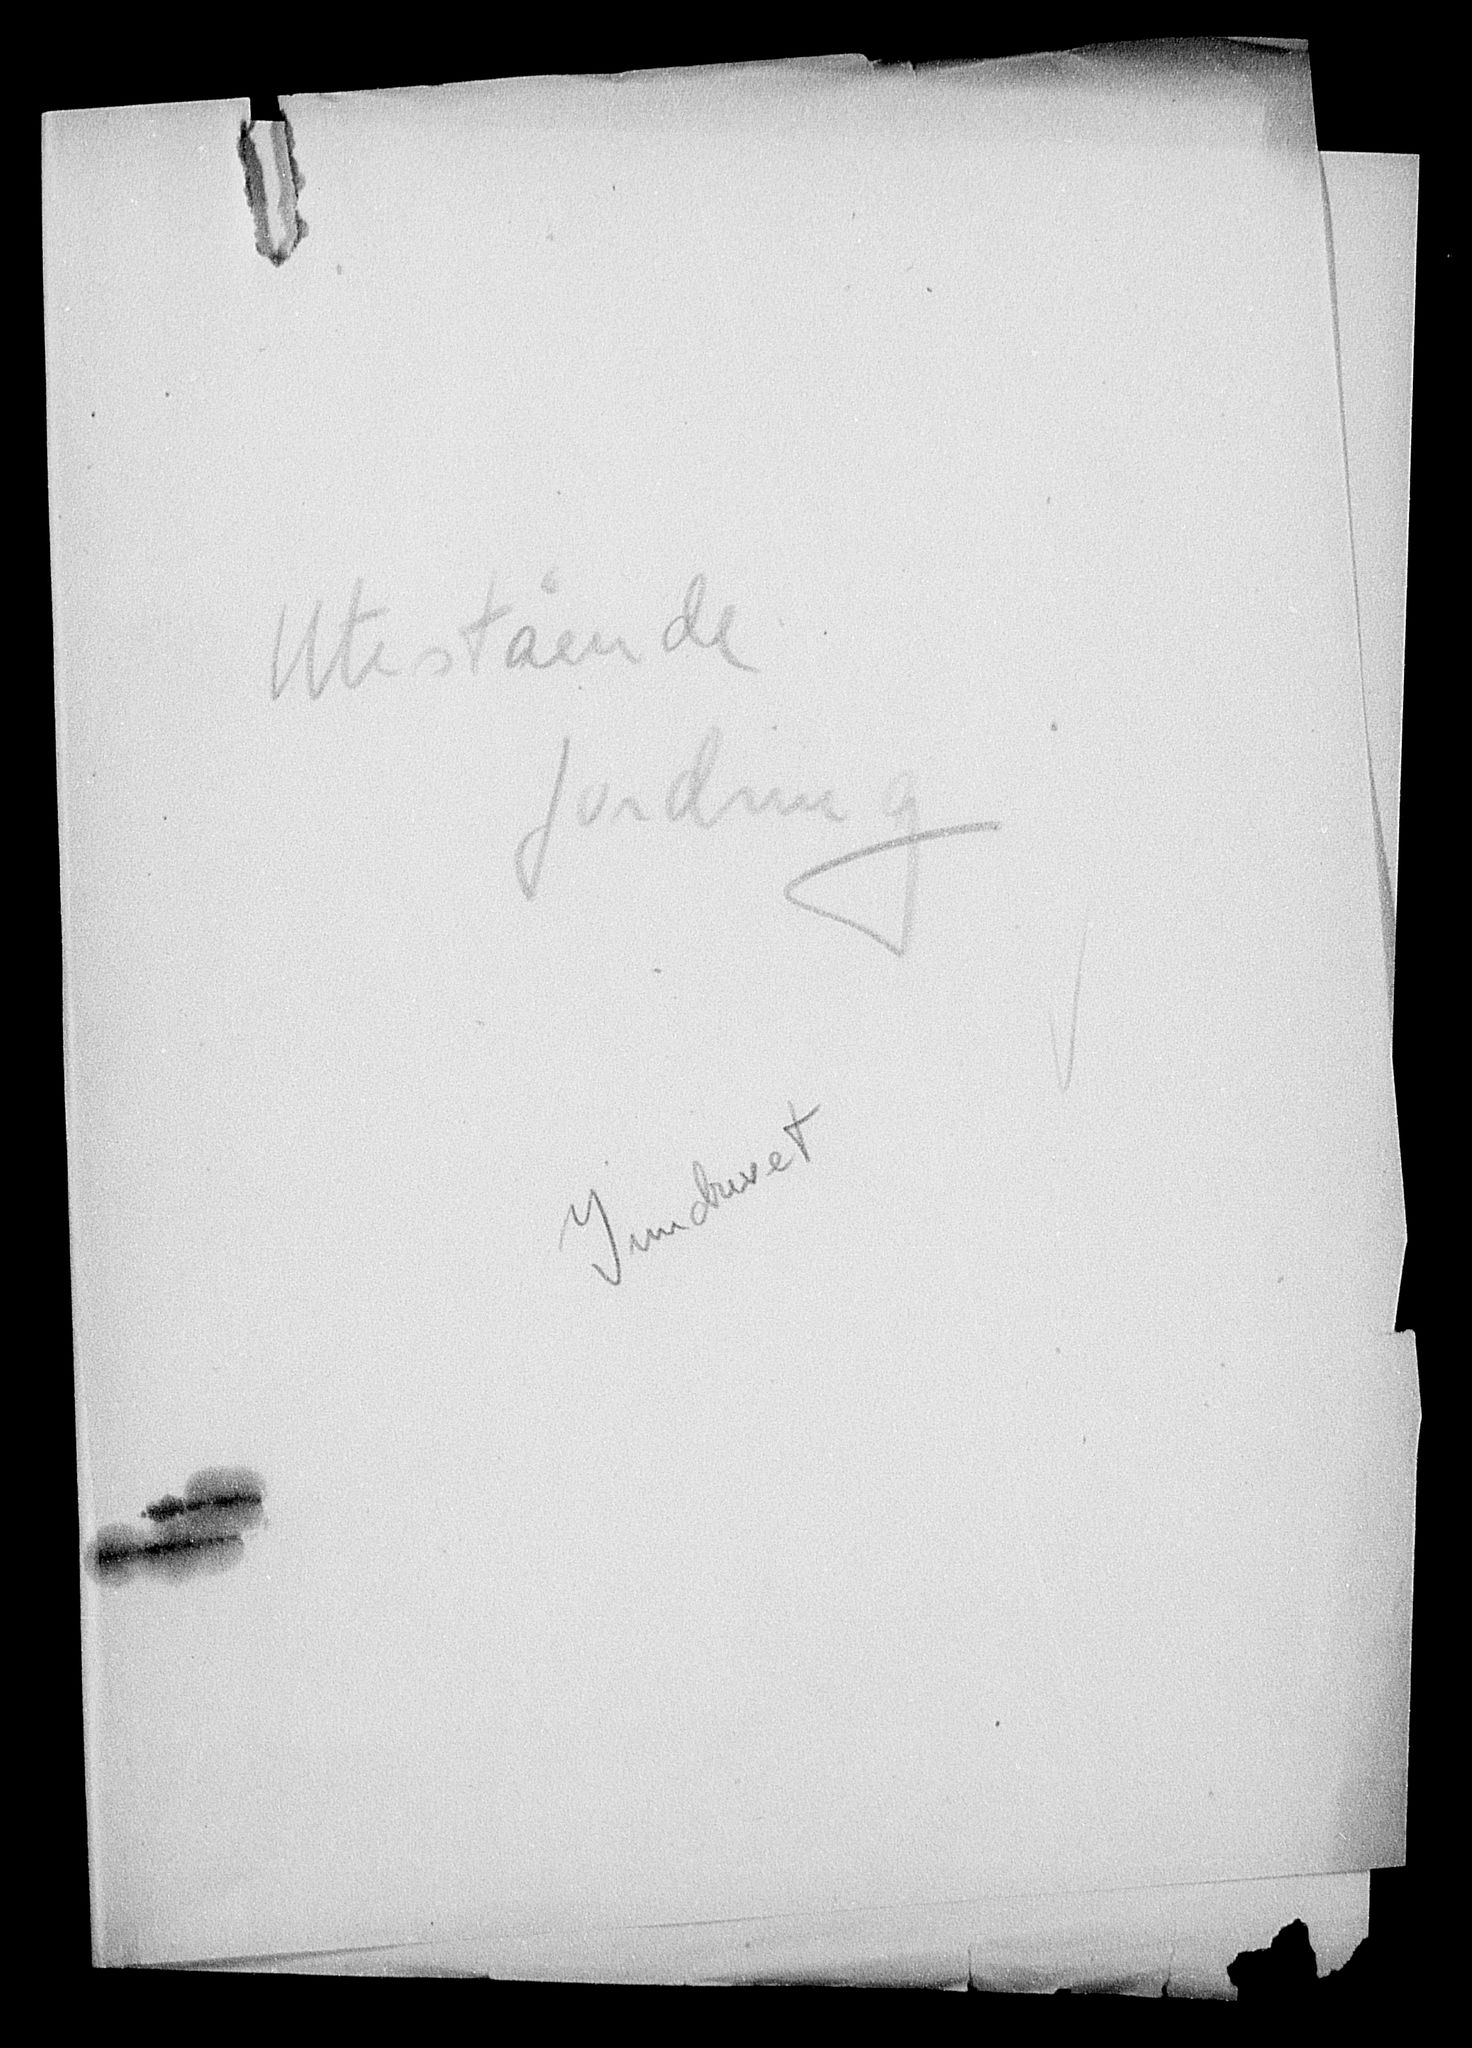 Utestående
fordring
Inndrevet